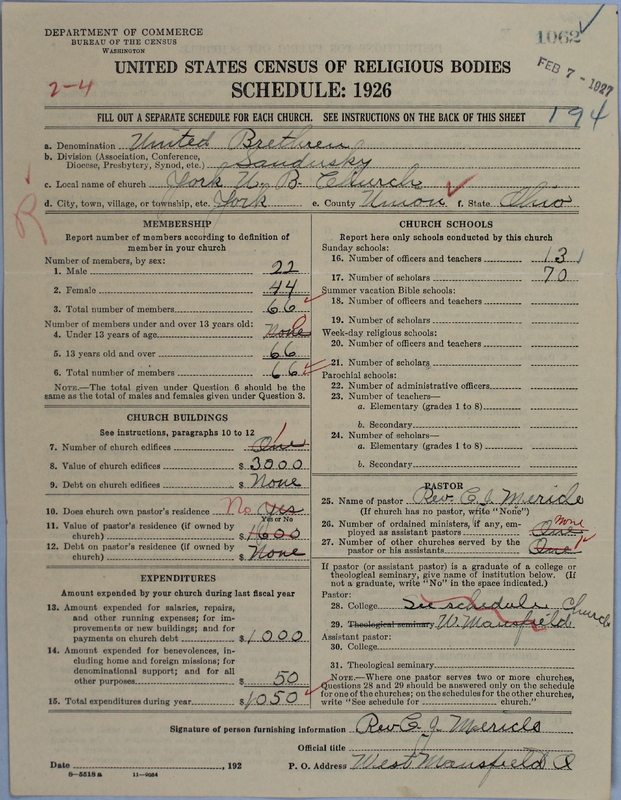 DEPARTMENT OF COMMERCE
BUREAU OF THE CENSUS
WASHINGTON
1062
FEB 7 - 1927
2-4
UNITED STATES CENSUS OF RELIGIOUS BODIES
SCHEDULE: 1926
FILL OUT A SEPARATE SCHEDULE FOR EACH CHURCH. SEE INSTRUCTIONS ON THE BACK OF THIS SHEET
194
a. Denomination United Brethren
b. Division (Association, Conference, Diocese, Presbytery, Synod, etc.) Sandusky
c. Local name of church York U. B. Church
d. City, town, village, or township, etc. York e. County Union f. State Ohio
R
MEMBERSHIP
Report number of members according to definition of
member in your church
Number of members, by sex:
1. Male 22
2. Female 44
3. Total number of members 66
Number of members under and over 13 years old:
4. Under 13 years of age None
5. 13 years old and over 66
6. Total number of members 66
NOTE.—The total given under Question 6 should be the
same as the total of males and females given under Question 3.
CHURCH BUILDINGS
See instructions, paragraphs 10 to 12
7. Number of church edifices One 1
8. Value of church edifices $ 3000
9. Debt on church edifices $ None
10. Does church own pastor's residence? No Yes
Yes or No
11. Value of pastor's residence (if owned by
church) $ 1600
12. Debt on pastor's residence (if owned by
church) $ None
EXPENDITURES
Amount expended by your church during last fiscal year
13. Amount expended for salaries, repairs,
and other running expenses; for im-
provements or new buildings; and for
payments on church debt $ 1000
14. Amount expended for benevolences, in-
cluding home and foreign missions; for
denominational support; and for all
other purposes $ 50
15. Total expenditures during year $ 1050
CHURCH SCHOOLS
Report here only schools conducted by this church
Sunday schools:
16. Number of officers and teachers 13
17. Number of scholars 70
Summer vacation Bible schools:
18. Number of officers and teachers
19. Number of scholars
Week-day religious schools:
20. Number of officers and teachers
21. Number of scholars
Parochial schools:
22. Number of administrative officers
23. Number of teachers—
a. Elementary (grades 1 to 8)
b. Secondary
24. Number of scholars—
a. Elementary (grades 1 to 8)
b. Secondary
PASTOR
25. Name of pastor Rev. C. J. Mericle
(If church has no pastor, write "None")
26. Number of ordained ministers, if any, em-
ployed as assistant pastors One None
27. Number of other churches served by the
pastor or his assistants One 1
If pastor (or assistant pastor) is a graduate of a college or
theological seminary, give name of institution below. (If
not a graduate, write "No" in the space indicated.)
Pastor:
28. College See schedule Church
29. Theological seminary W. Mansfield
Assistant pastor:
30. College
31. Theological seminary
NOTE.—Where one pastor serves two or more churches,
Questions 28 and 29 should be answered only on the schedule
for one of the churches; on the schedules for the other churches,
write "See schedule for church."
Signature of person furnishing information Rev C. J. Mericle
Official title
Date , 192 P. O. Address West Mansfield O
8—5518 a 11—9054